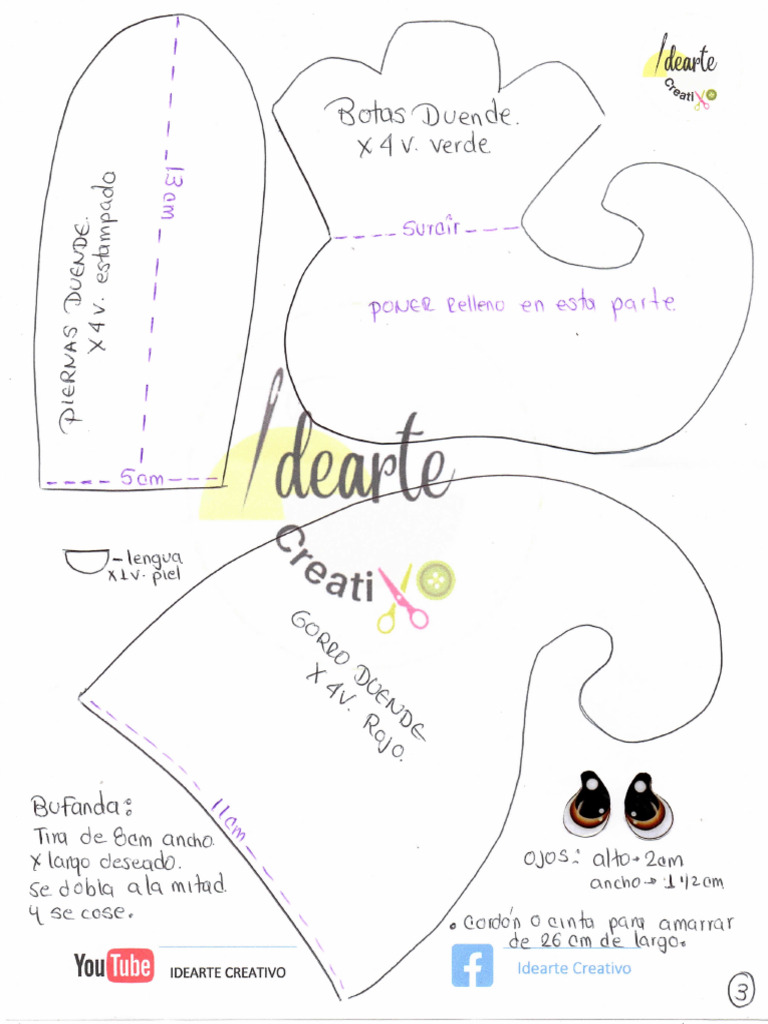 Idearte
Creati
Botas Duende.
x 4 v. verde
13 cm
PIERNAS DUENDE.
x 4 v. estampado
5cm
- Surcir -
PONER Relleno en esta parte
Idearte
Creati
- lengua
x 1 v. piel
GORRO DUENDE
X 4V. Rojo.
11cm
Bufanda:
Tira de 8cm ancho.
x largo deseado.
se dobla a la mitad.
y se cose.
ojos: alto → 2cm
ancho → 1 1/2 cm
• cordón o cinta para amarrar
de 26 cm de largo.
YouTube IDEARTE CREATIVO
f Idearte Creativo
3